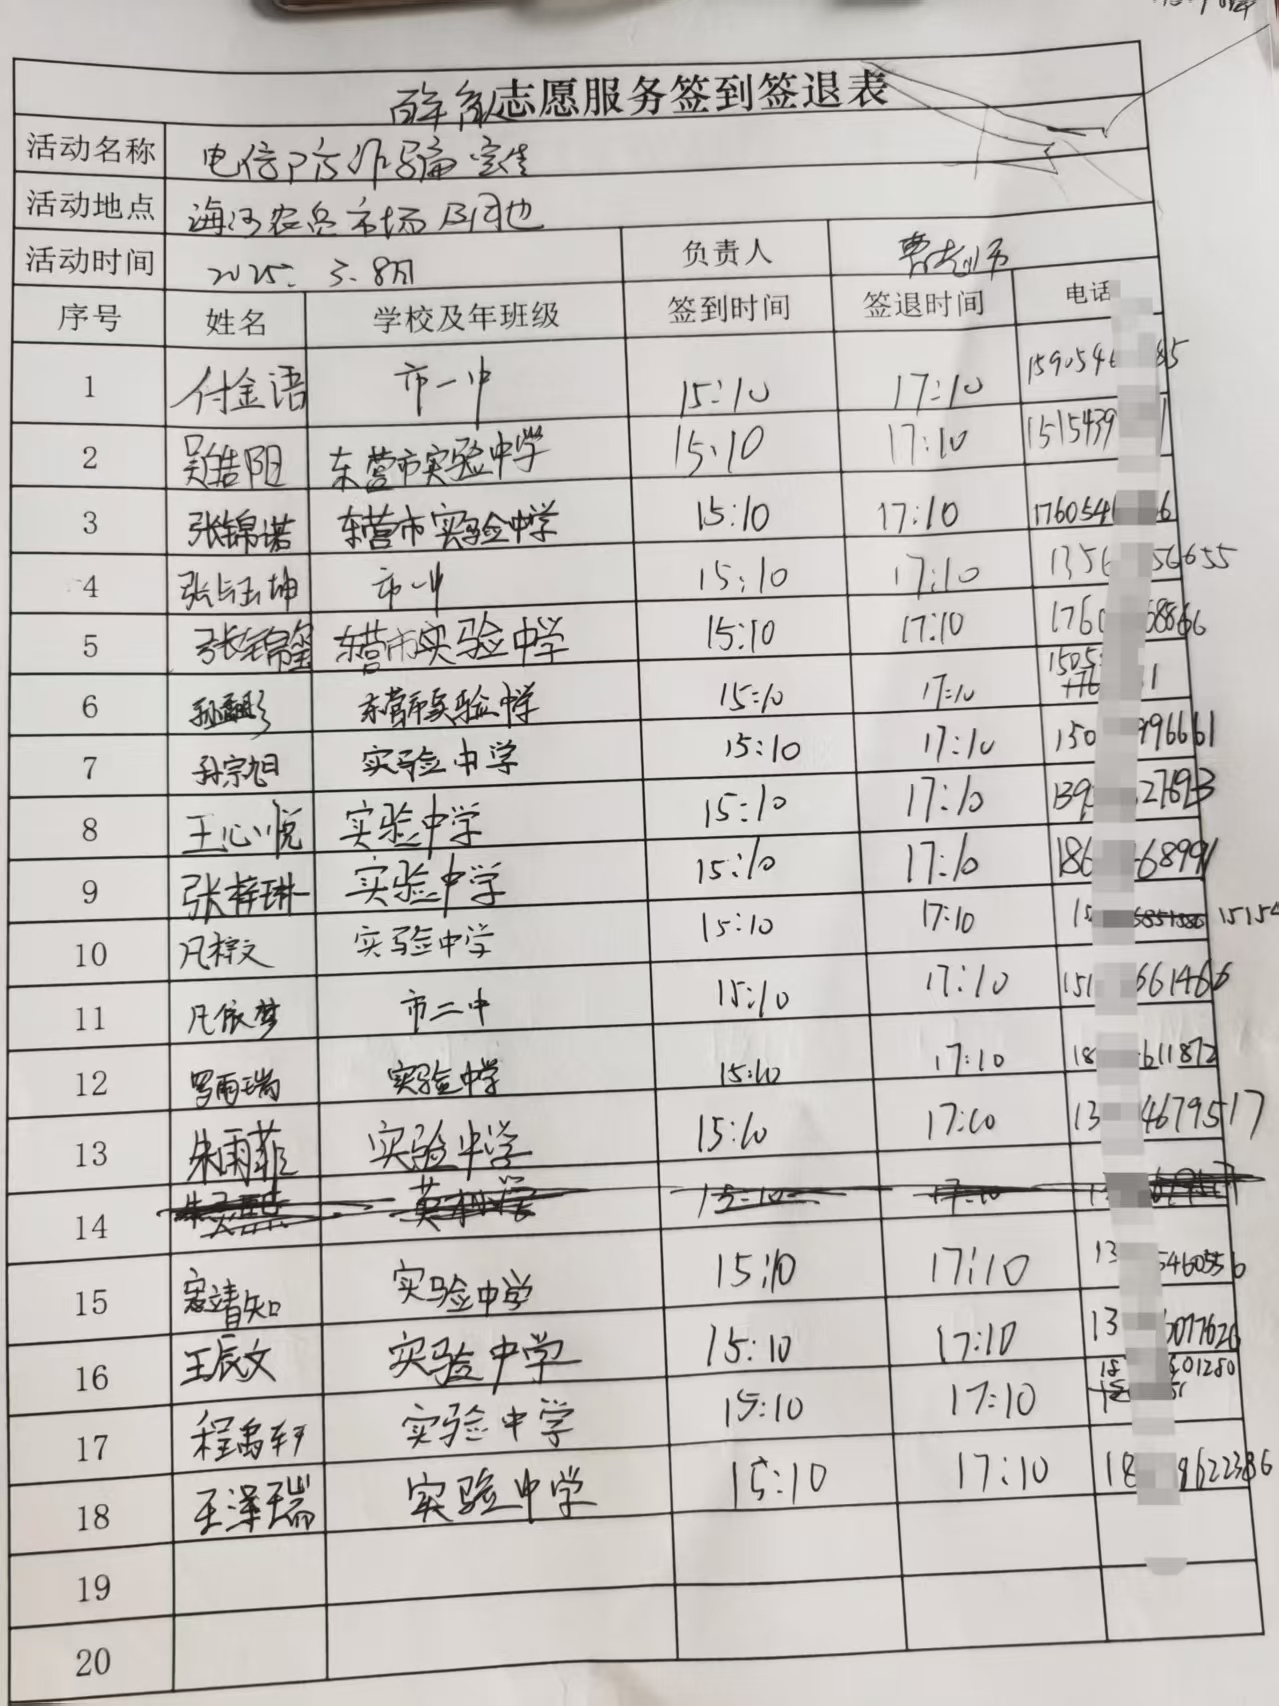 志愿服务签到签退表
活动名称 电信防诈骗宣传
活动地点 海河农贸市场及周边
活动时间 2025. 3. 8日 负责人 曹老师
序号 姓名 学校及年班级 签到时间 签退时间 电话
1 付金语 市一中 15:10 17:10 1590546 85
2 吴皓阳 东营市实验中学 15:10 17:10 1515439 1
3 张锦诺 东营市实验中学 15:10 17:10 1760546 66
4 张钰坤 市一中 15:10 17:10 1356 56655
5 张锦 东营市实验中学 15:10 17:10 1760 68866
6 东营市实验中学 15:10 17:10 1505 1
7 孙宗旭 实验中学 15:10 17:10 150 996661
8 王心悦 实验中学 15:10 17:10 139 27693
9 张梓琳 实验中学 15:10 17:10 186 68991
10 凡梓文 实验中学 15:10 17:10 15 15154
11 凡依梦 市二中 15:10 17:10 151 661466
12 罗雨瑞 实验中学 15:10 17:10 18 611872
13 朱雨菲 实验中学 15:10 17:10 13 4679517
14 15:10 17:10
15 靖知 实验中学 15:10 17:10 13 5460556
16 王辰文 实验中学 15:10 17:10 13 6077626
17 程禹轩 实验中学 15:10 17:10 18 401280
18 王泽瑞 实验中学 15:10 17:10 18 9622386
19
20